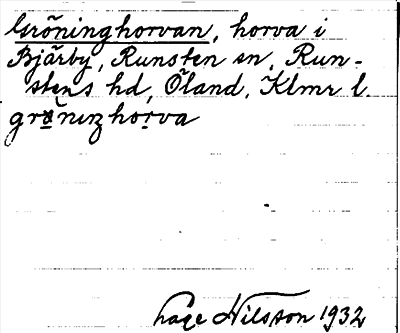 Gröninghorvan, horva i
Bjärby, Runsten sn, Run-
stens hd, Öland, Klmr l.
Nilsson 1932